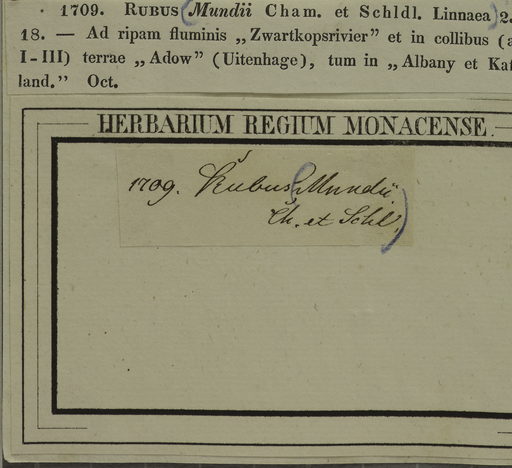 1709. RUBUS (Mundii Cham. et Schldl. Linnaea) 2.
18. — Ad ripam fluminis „Zwartkopsrivier” et in collibus (a
I-III) terrae „Adow” (Uitenhage), tum in „Albany et Kaf
land.” Oct.
HERBARIUM REGIUM MONACENSE.
1709. Rubus (Mundii
Ch. et Schl.)